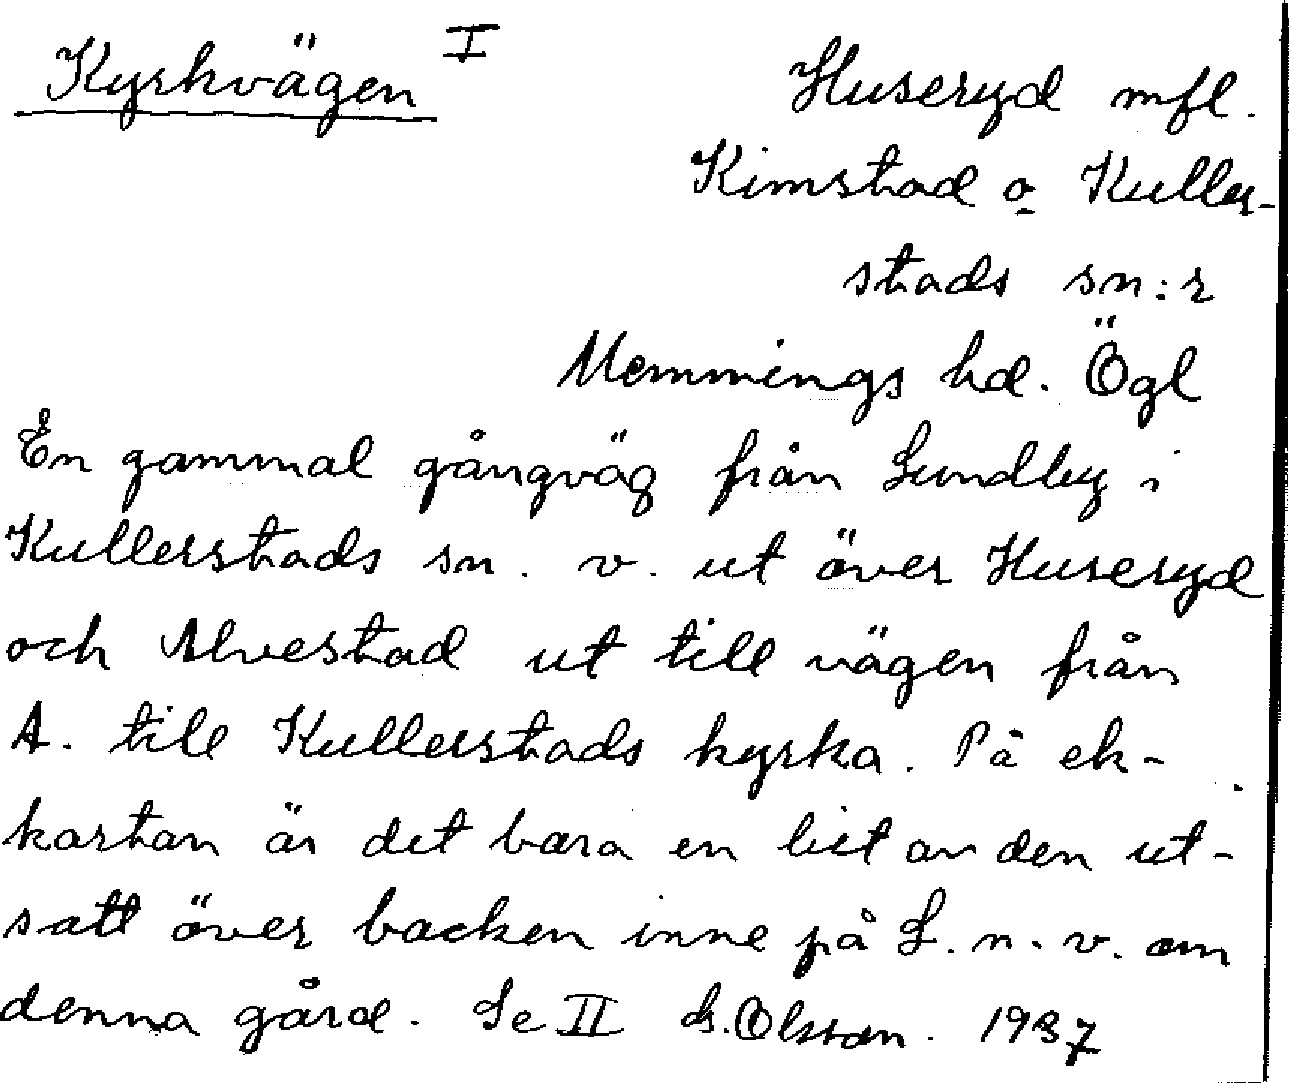 Kyrkvägen I
Huseryd mfl.
Kimstad o Kuller-
stads sn:r
Memmings hd. Ögl
En gammal gångväg från Lundby i
Kullerstads sn. v. ut över Huseryd
och Alvestad ut till vägen från
A. till Kullerstads kyrka. På ek-
kartan är det bara en bit av den ut-
satt över backen inne på L. n. v. om
denna gård. Se II G. Olsson. 1937